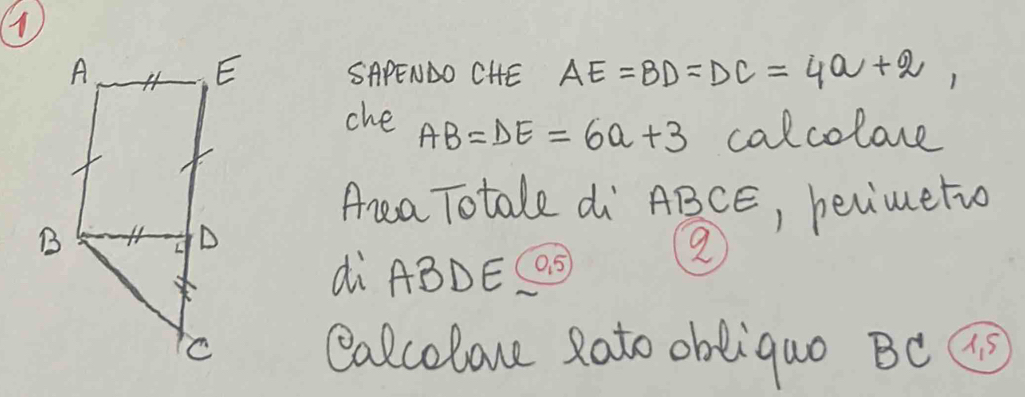 1
A E
SAPENDO CHE AE = BD = DC = 4a + 2 ,
che AB = DE = 6a + 3 calcolare
Area Totale di ABCE, perimetro
B D
2
di ABDE 0,5
C
Calcolare lato obliquo BC 1,5